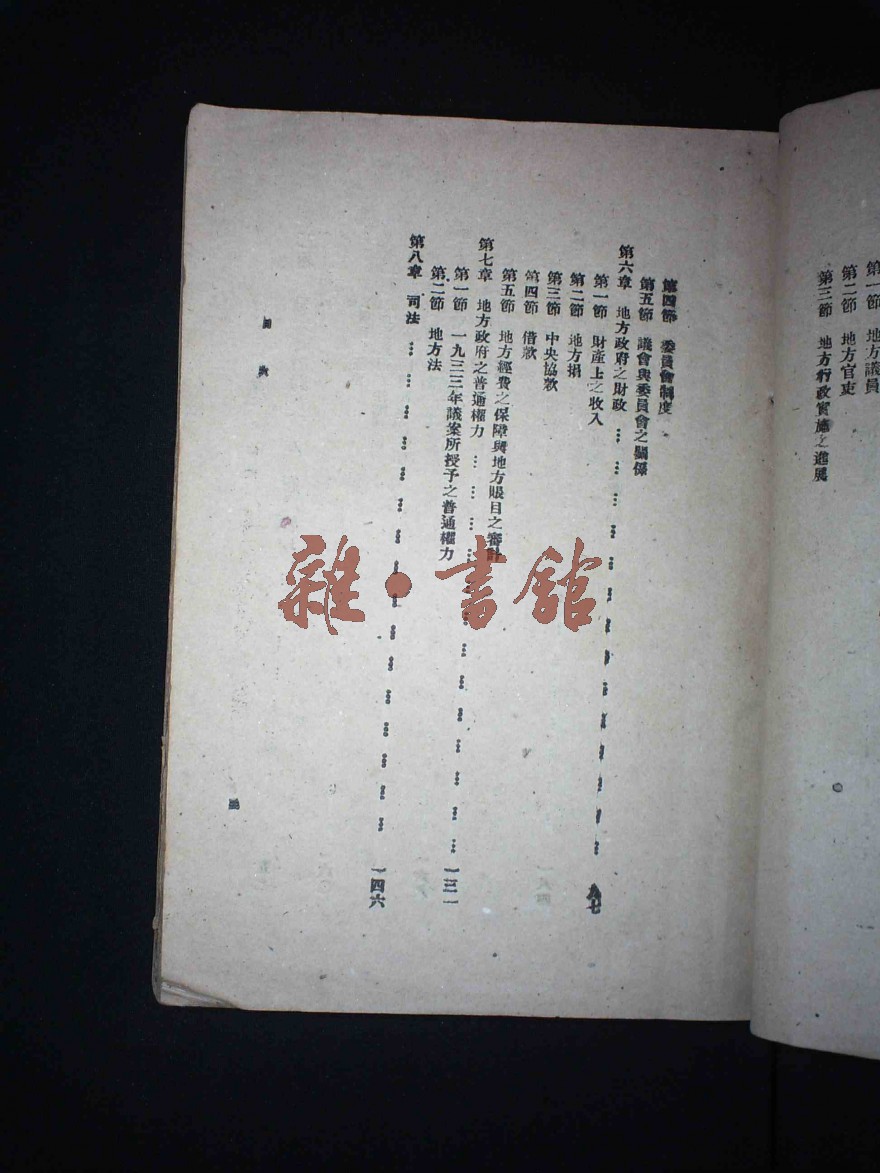 第一節 地方議員
第二節 地方官吏
第三節 地方行政實施之進展
第四節 委員會制度
第五節 議會與委員會之關係
第六章 地方政府之財政 … … … … … … … … … … … … 九七
第一節 財產上之收入
第二節 地方捐
第三節 中央協款
第四節 借款
第五節 地方經費之保障與地方賬目之審計
第七章 地方政府之普通權力 … … … … … … … … … … … … 一三一
第一節 一九三三年議案所授予之普通權力
第二節 地方法
第八章 司法 … … … … … … … … … … … … … … … … 一四六
目 次
三
雜·書館